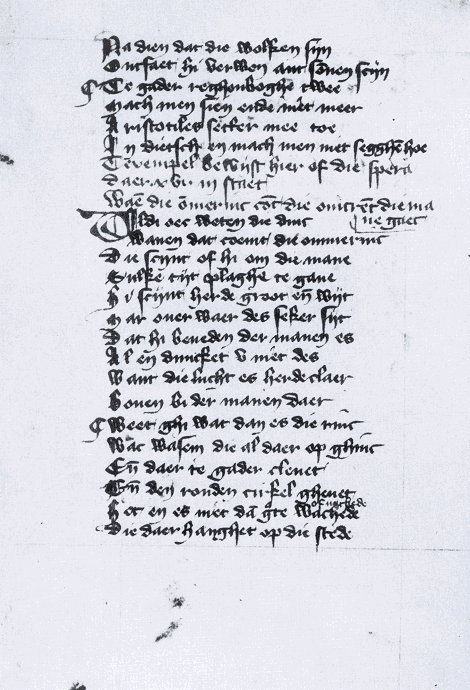 Na dien dat die wolken sijn
Ontfaet hi verwen ant sonen scijn
Te gader reghenboghe twee
mach men sien ende niet meer
Aristotiles seker mee toe
In dietsch en mach men niet segghē hoe
Texempel bewijst hier of die spera
daer in staet
Wāē die ōmerinc cōt die
me gaet
Wildi oec weten die dinc
Wanen dat coemt die ommerinc
Die scijnt of hi om die mane
Sulke tijt plaghe te gane
hi scijnt herde groot eñ wijt
mar over waer des seker sijt
Dat hi beneden der manen es
Al eñ duncket v niet des
want die lucht es herde claer
Boven bi der manen daer
Weet ghi wat dan es die rinc
Wat wasem die al daer op ghinc
Eñ daer te gader clevet
Eñ den ronden cirkel ghevet
het en es niet dā grē wachede
Die daer hanghet op die stede